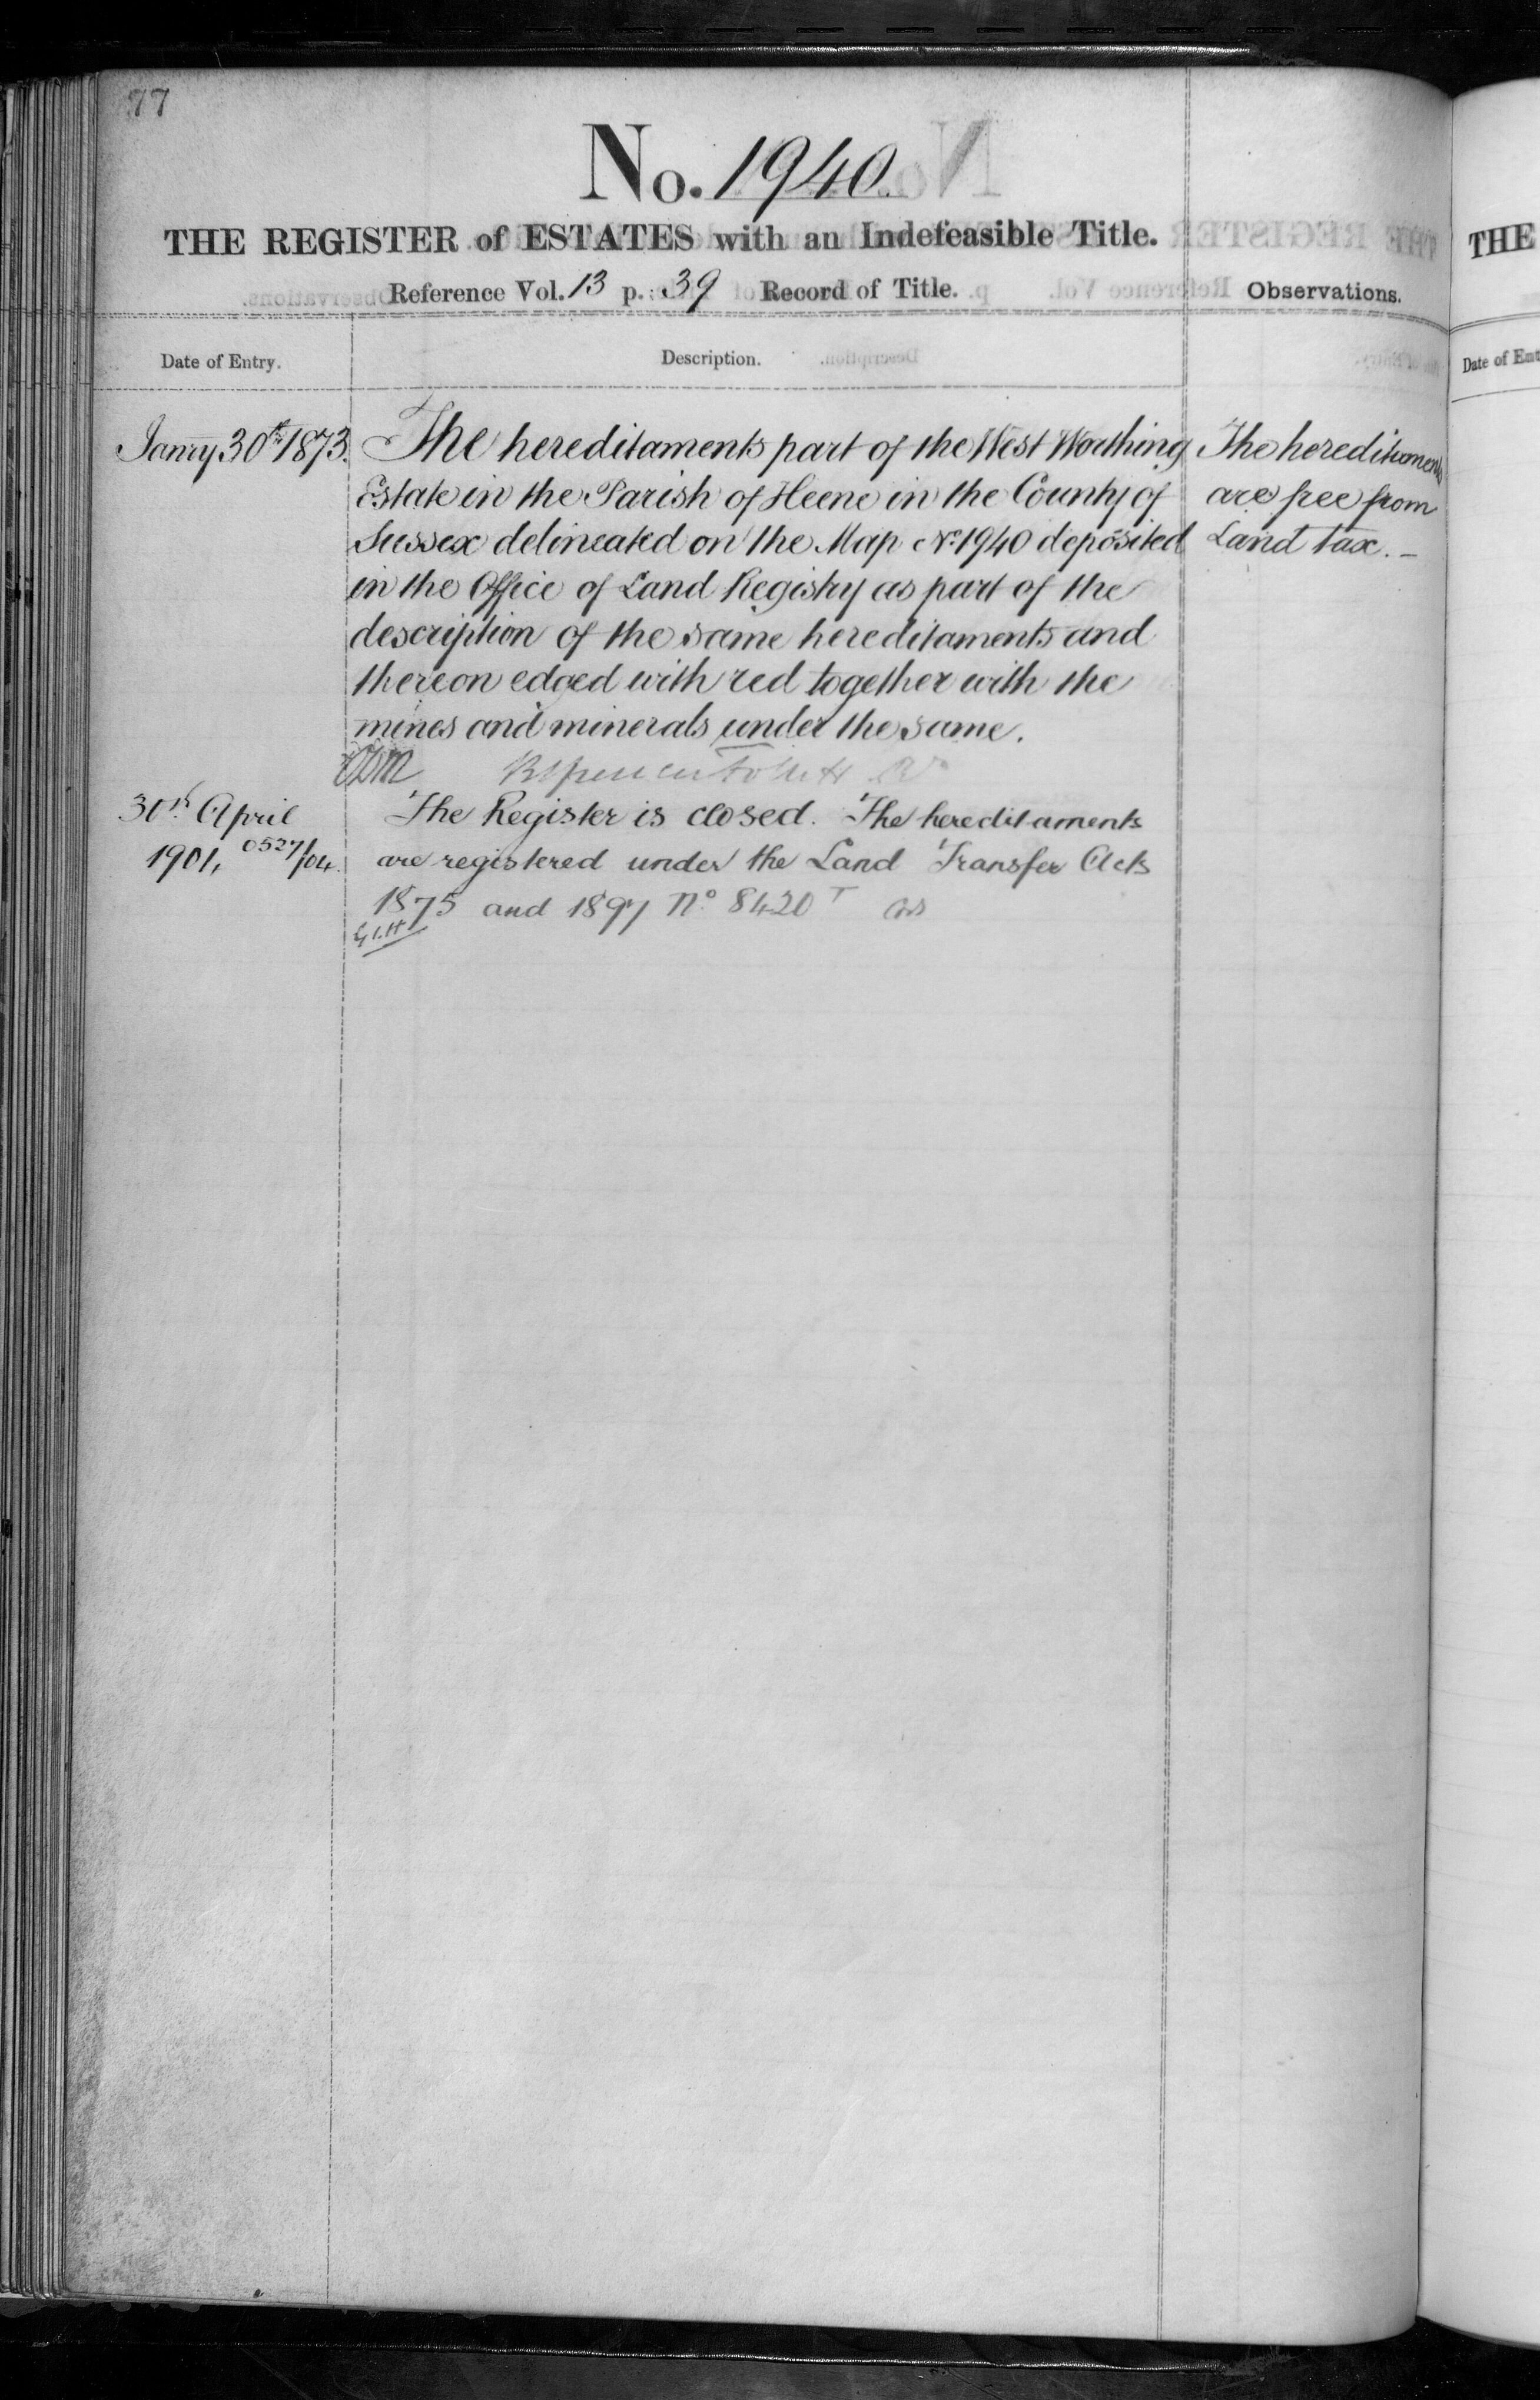 77
No. 1940.
THE REGISTER of ESTATES with an Indefeasible Title.
Reference Vol. 13 p. 39 Record of Title.
Observations.
Date of Entry.
Description.
Janry 30th 1873.
The hereditaments part of the West Worthing
Estate in the Parish of Heene in the County of
Sussex delineated on the Map No. 1940 deposited
in the Office of Land Registry as part of the
description of the same hereditaments and
thereon edged with red together with the
mines and minerals under the same.
The hereditaments
are free from
Land tax. –
30th April
1904, 0527/04.
The Register is closed. The hereditaments
are registered under the Land Transfer Acts
1875 and 1897 No 8420 T
THE
Date of Ent